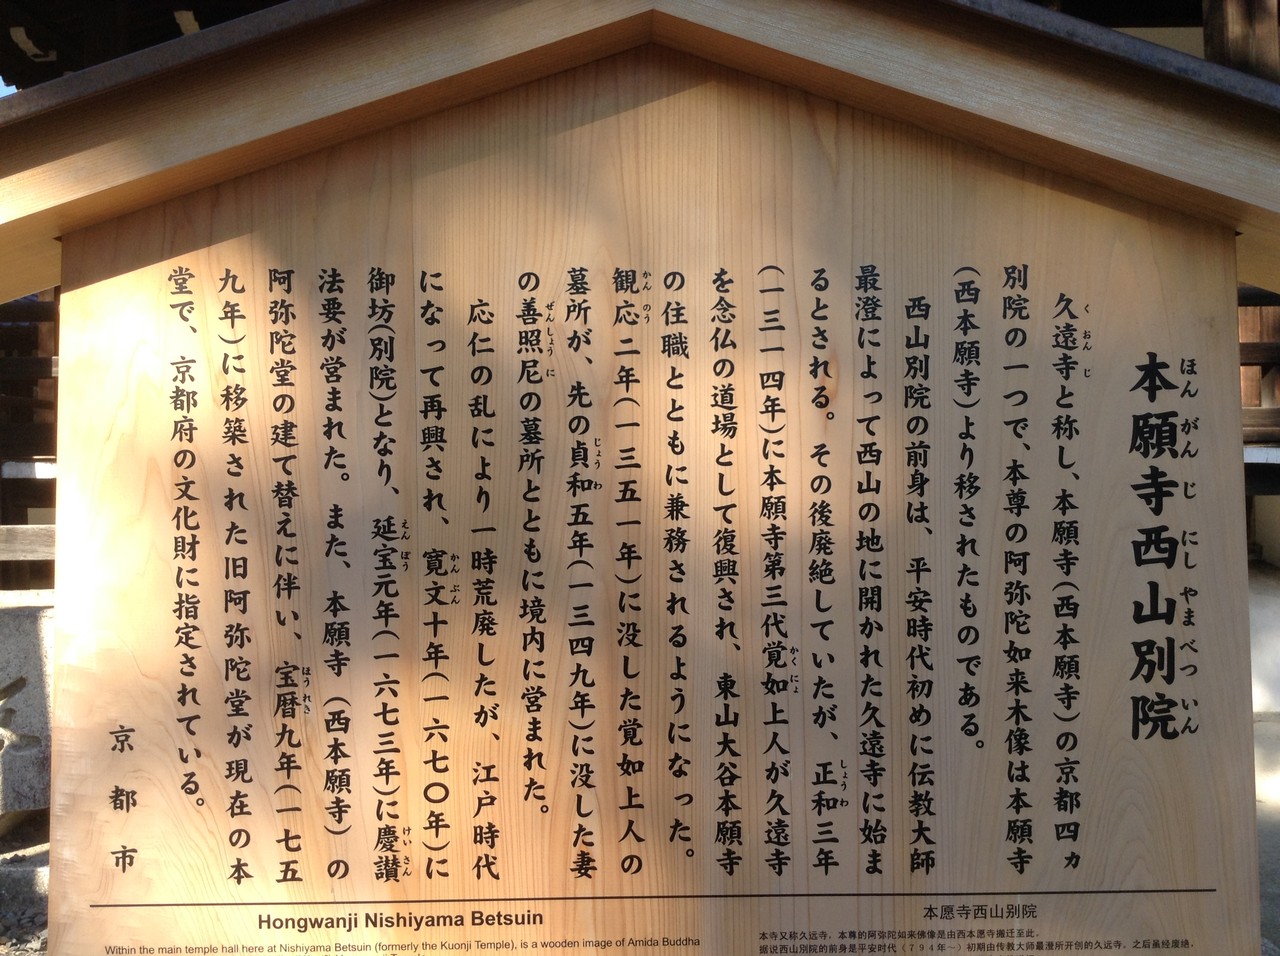 本願寺西山別院
ほんがんじにしやまべついん
久遠寺と称し、本願寺(西本願寺)の京都四ヵ
くおんじ
別院の一つで、本尊の阿弥陀如来木像は本願寺
(西本願寺)より移されたものである。
西山別院の前身は、平安時代初めに伝教大師
最澄によって西山の地に開かれた久遠寺に始ま
るとされる。その後廃絶していたが、正和三年
しょうわ
(一三一四年)に本願寺第三代覚如上人が久遠寺
かくにょ
を念仏の道場として復興され、東山大谷本願寺
の住職とともに兼務されるようになった。
観応二年(一三五一年)に没した覚如上人の
かんのう
墓所が、先の貞和五年(一三四九年)に没した妻
じょうわ
の善照尼の墓所とともに境内に営まれた。
ぜんしょうに
応仁の乱により一時荒廃したが、江戸時代
になって再興され、寛文十年(一六七〇年)に
かんぶん
御坊(別院)となり、延宝元年(一六七三年)に慶讃
えんぽう けいさん
法要が営まれた。また、本願寺(西本願寺)の
阿弥陀堂の建て替えに伴い、宝暦九年(一七五
ほうれき
九年)に移築された旧阿弥陀堂が現在の本
堂で、京都府の文化財に指定されている。
京都市
Hongwanji Nishiyama Betsuin
Within the main temple hall here at Nishiyama Betsuin (formerly the Kuonji Temple), is a wooden image of Amida Buddha
本愿寺西山别院
本寺又称久远寺。本尊的阿弥陀如来佛像是由西本愿寺搬迁至此。
据说西山别院的前身是平安时代(794年~)初期由传教大师最澄所开创的久远寺。之后虽经废绝,